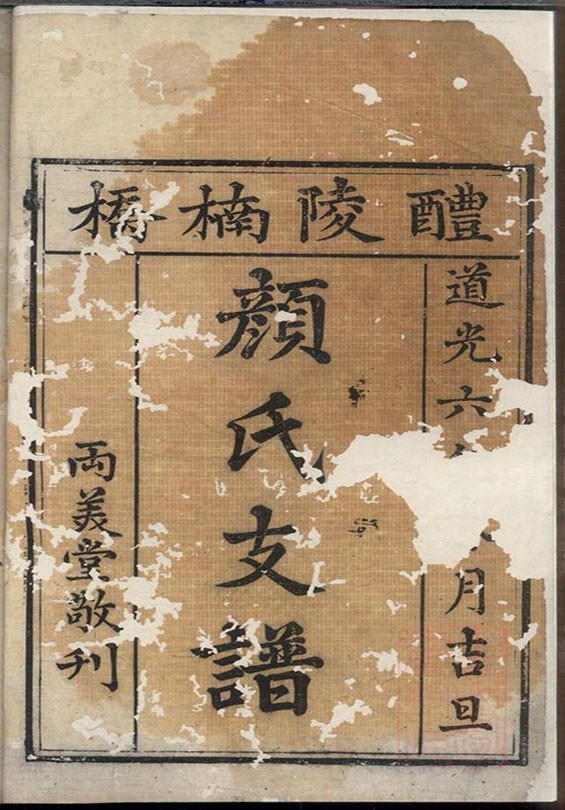 醴陵楠橋
道光六月吉旦
顏氏支譜
兩美堂敬刊